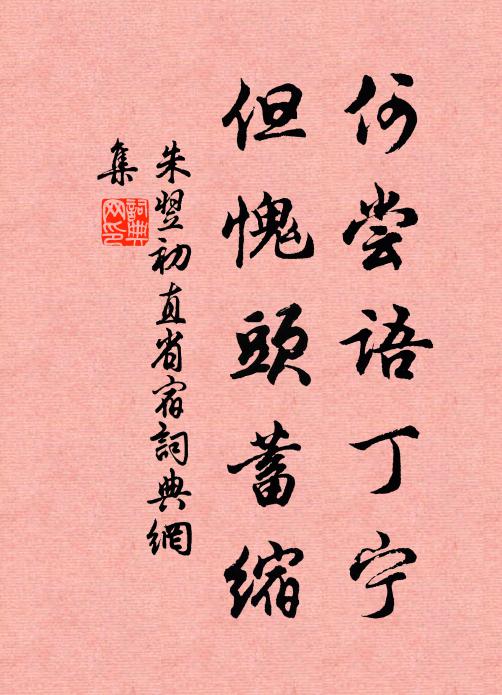 何尝語丁宁
但愧頭蓄縮
朱翌初直省宿詞典網
集
詞典网印